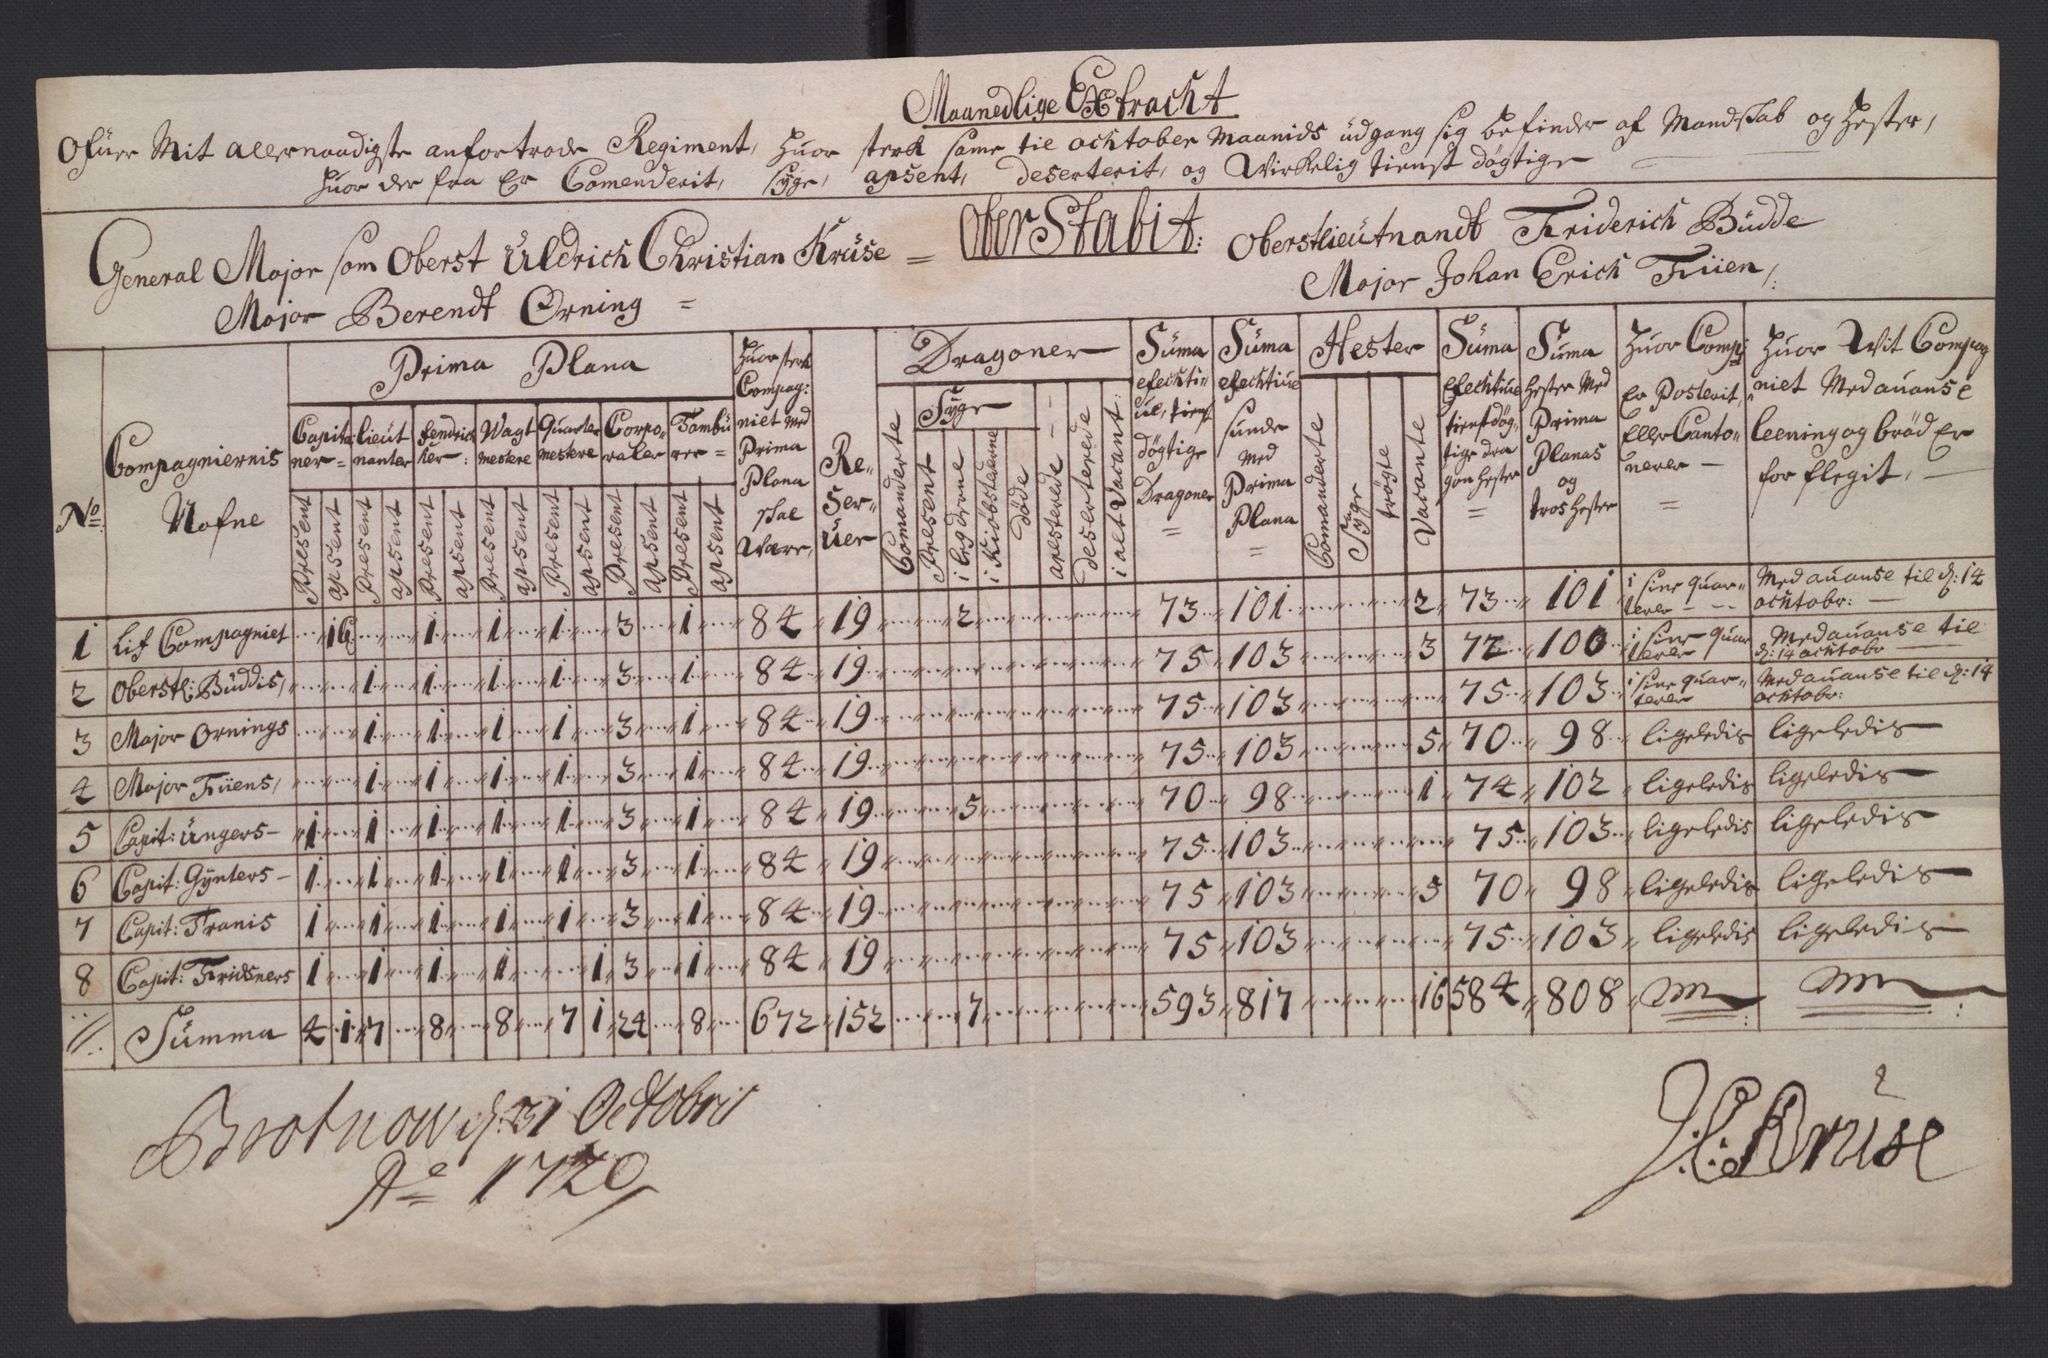 Maanedlige Extracht
Ofuer Mit allernaadigste anfortrode Regiment, Huor sterk same til ochtober Maanids udgang sig befinder af Mandskab og Hester,
Huor der fra Er Comenderit, syge, apsent, deserterit, og Wirkelig tienst døgtige
General Major som Oberst Uldrich Christian Krüse = Ober Stabit: Oberstlieutnandt Friderich Büdde
Major Berendt Orning = Major Johan Erich Füien,
No: Compagniernis Nafne
Prima Plana
Capitainer= Lieutnanter fendricker: Wagtmestere Quartermestere Corporaler Tambúrer=
Present apsent Present apsent Present apsent Present apsent Present apsent Present apsent Present apsent
Huor sterk Compag:niet Med Prima Plana skal Være,
Reserver
Dragoner
Comanderte
Syge
Present i legderne i Kiøbstæderne døde
aresterede
deserterede
i alt Vacant:
Süma efecktiue, tienst døgtige Dragoner =
Süma efecktiue sunde Med Prima Plana =
Hester
Comanderte Syge trøste Vacante
Süma Efecktiue tienstdøgtige dragon Hester =
Suma Hester Med Prima Planas og tros Hester
Huor Comp: Er Posterit, Eller Cantonerer =
Huor Wit Compagniet Med auanse leening og brød Er forflegit,
1 Lif Compagniet 1 1 1 1 3 1 84 19 2 73 101 2 73 101 i sine quarterer Med auanse til d: 14 ochtobr:
2 Oberstl: Büddis, 1 1 1 1 3 1 84 19 75 103 3 72 100 i sine quarterer Med auanse til d: 14 ochtobr
3 Major Ornings 1 1 1 1 3 1 84 19 75 103 75 103 i sine quarterer Med auanse til d: 14 ochtobr:
4 Major Füens, 1 1 1 1 3 1 84 19 75 103 5 70 98 ligeledis ligeledis
5 Capit: Üngers 1 1 1 1 1 3 1 84 19 5 70 98 1 74 102 ligeledis ligeledis
6 Capit: Gÿnters 1 1 1 1 1 3 1 84 19 75 103 75 103 ligeledis ligeledis
7 Capit: Franis 1 1 1 1 1 3 1 84 19 75 103 5 70 98 ligeledis ligeledis
8 Capit: Fridsners 1 1 1 1 1 3 1 84 19 75 103 75 103 ligeledis ligeledis
Summa 4 1 7 8 8 7 1 24 8 672 152 7 593 817 16 584 808
Brotnow d: 31 Octobris
Ao 1720
U: C: Krüse